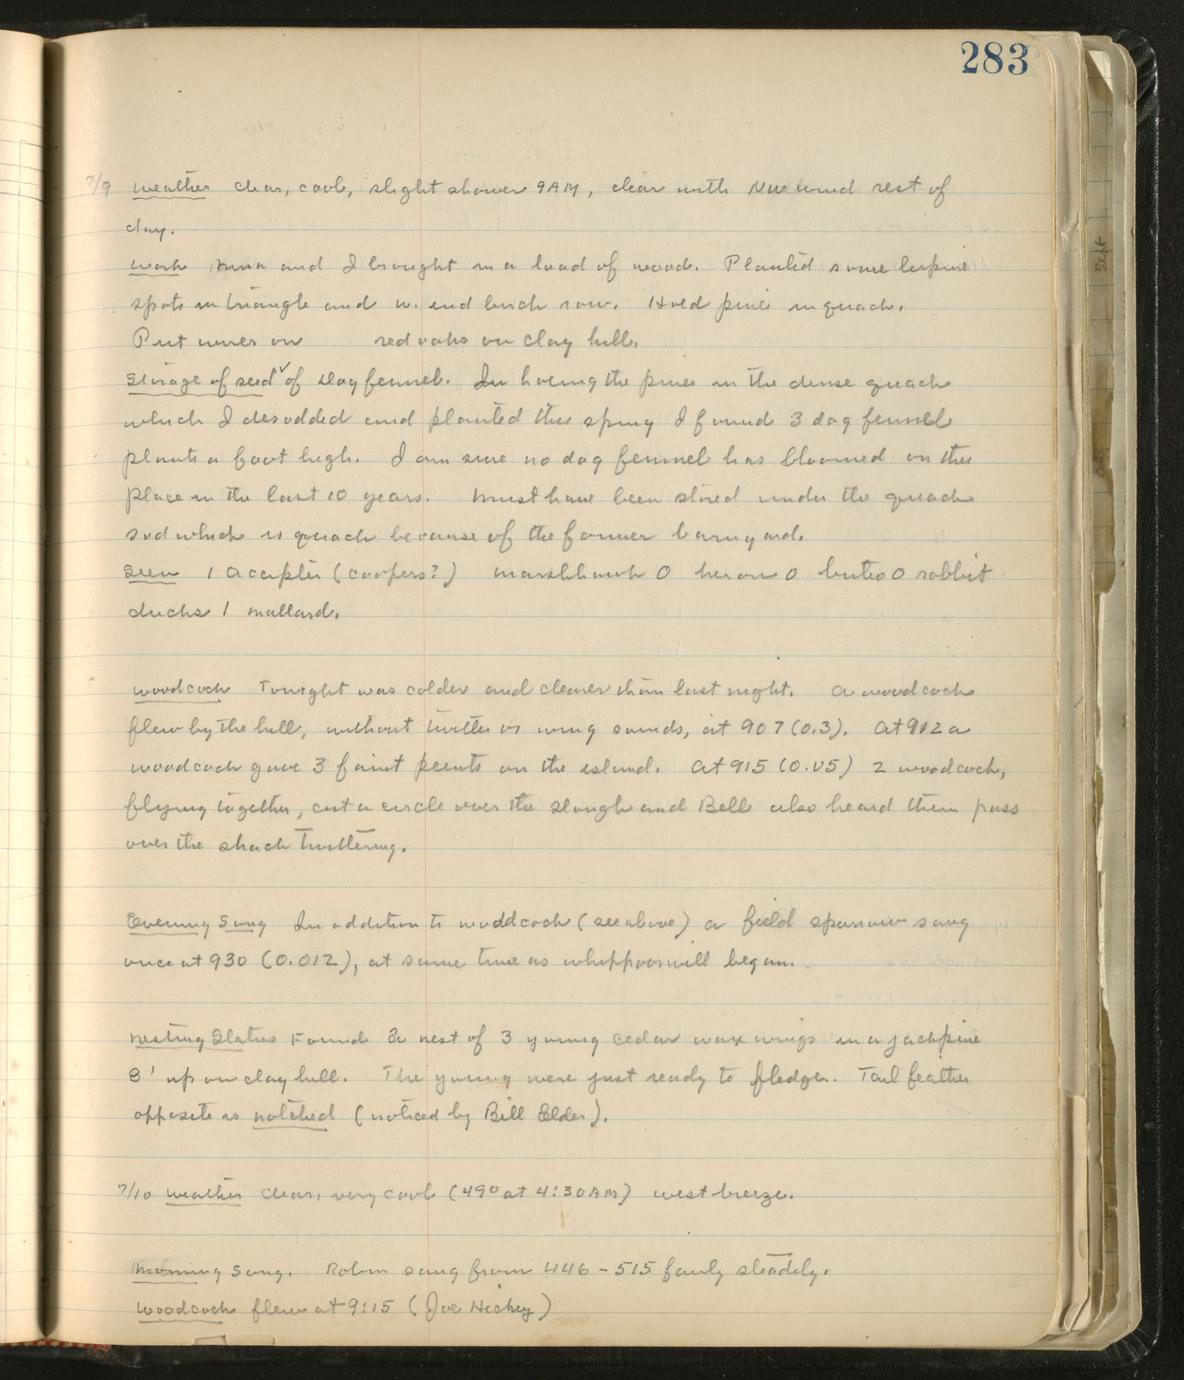 283
7/9 Weather clear, cool, slight shower 9AM, clear with NW wind rest of
day.
Work Nina and I brought in a load of wood. Planted some lupine
spots in triangle and w. end birch row. Hoed pines in quack.
Put wires on red oaks on clay hill.
Storage of seed ✓ of Dog fennel. In hoeing the pines in the dense quack
which I desodded and planted this spring I found 3 dog fennel
plants a foot high. I am sure no dog fennel has bloomed on this
place in the last 10 years. Must have been stored under the quack
sod which is quack because of the former barnyard.
Seen 1 Accipiter (coopers?) marshhawk 0 heron 0 buteo 0 rabbit
ducks 1 mallard.
Woodcock Tonight was colder and clearer than last night. A woodcock
flew by the hill, without twitter or wing sounds, at 907 (0.3). At 912 a
woodcock gave 3 faint peents on the island. At 915 (0.05) 2 woodcock,
flying together, cut a circle over the slough and Bell also heard them pass
over the shack twittering.
Evening Song In addition to woodcock (see above) a field sparrow sang
once at 930 (0.012), at same time as whippoorwill began.
Nesting Status Found a nest of 3 young cedar waxwings in a jackpine
8' up on clay hill. The young were just ready to fledge. Tail feather
opposite is notched (noticed by Bill Elder).
7/10 Weather clear, very cool (49° at 4:30AM) west breeze.
Morning Song. Robin sang from 446 – 515 fairly steadily.
Woodcock flew at 9:15 (Joe Hickey)
Sept